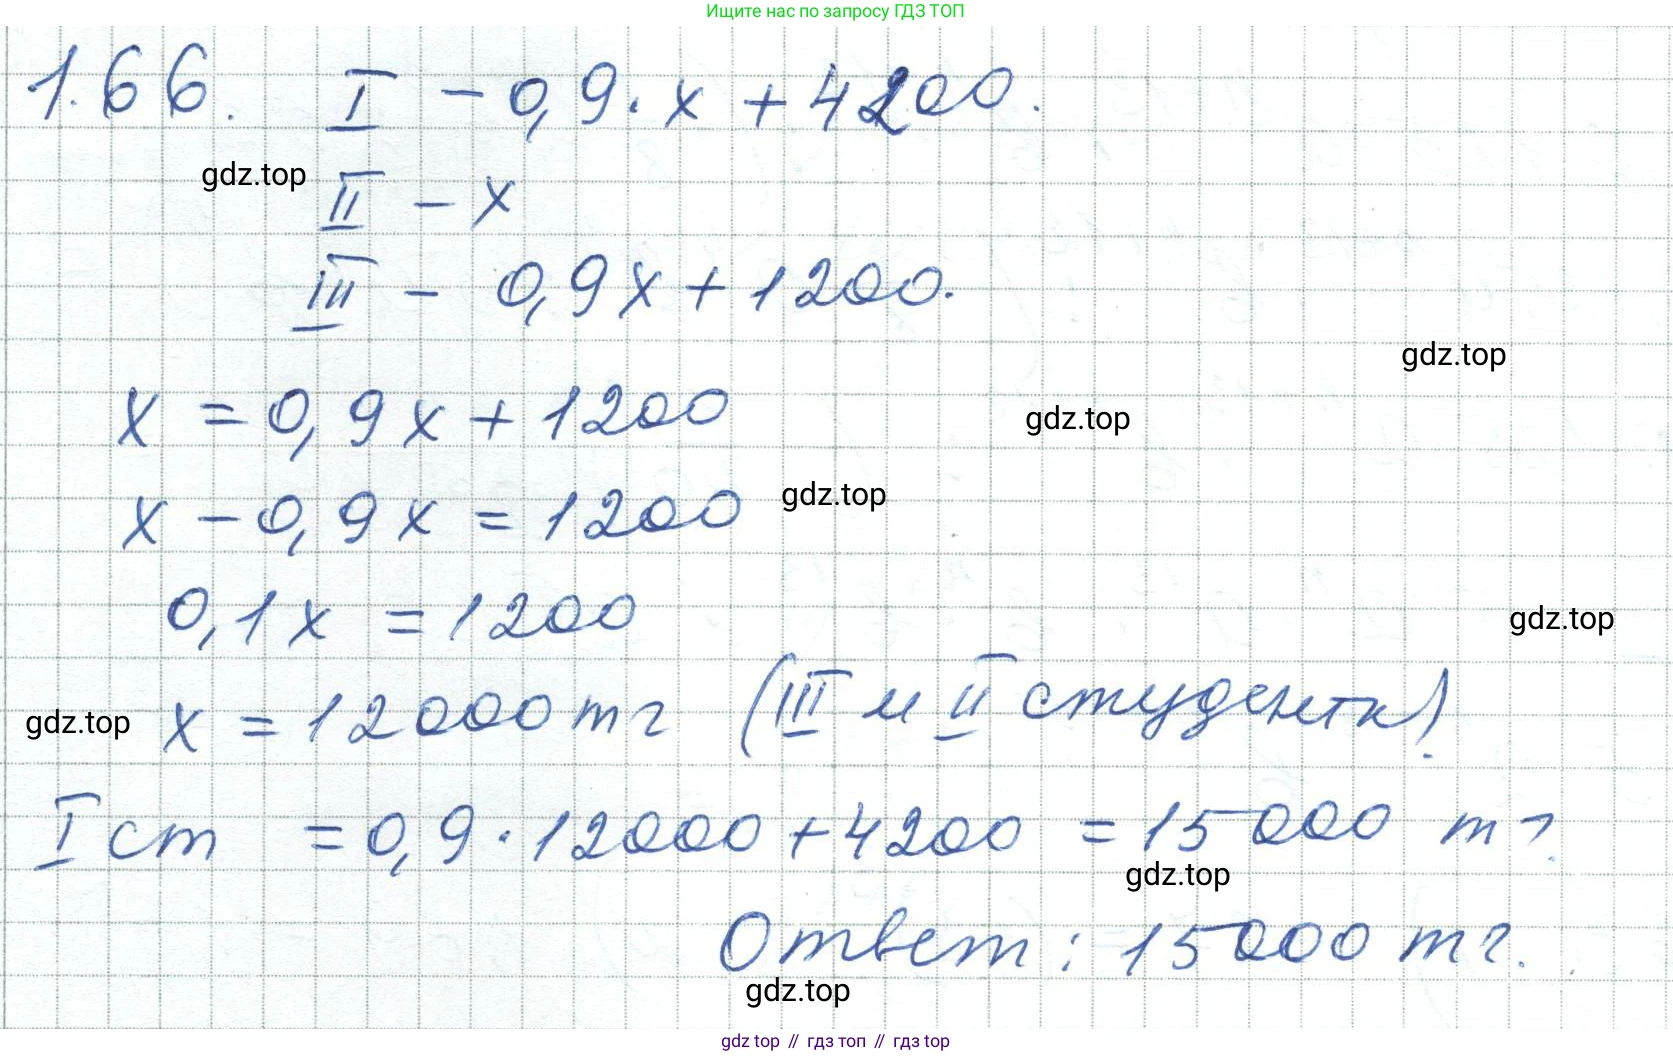 Ищите нас по запросу ГДЗ ТОП
1.66. I - 0,9 · x + 4200.
gdz.top
II - x
III - 0,9x + 1200.
gdz.top
x = 0,9x + 1200
gdz.top
x - 0,9x = 1200
gdz.top
0,1x = 1200
gdz.top
x = 12000 тг (III и II студенты).
gdz.top
I ст = 0,9 · 12000 + 4200 = 15000 тг.
gdz.top
Ответ: 15000 тг.
gdz.top
gdz top // гдз топ // гдз top